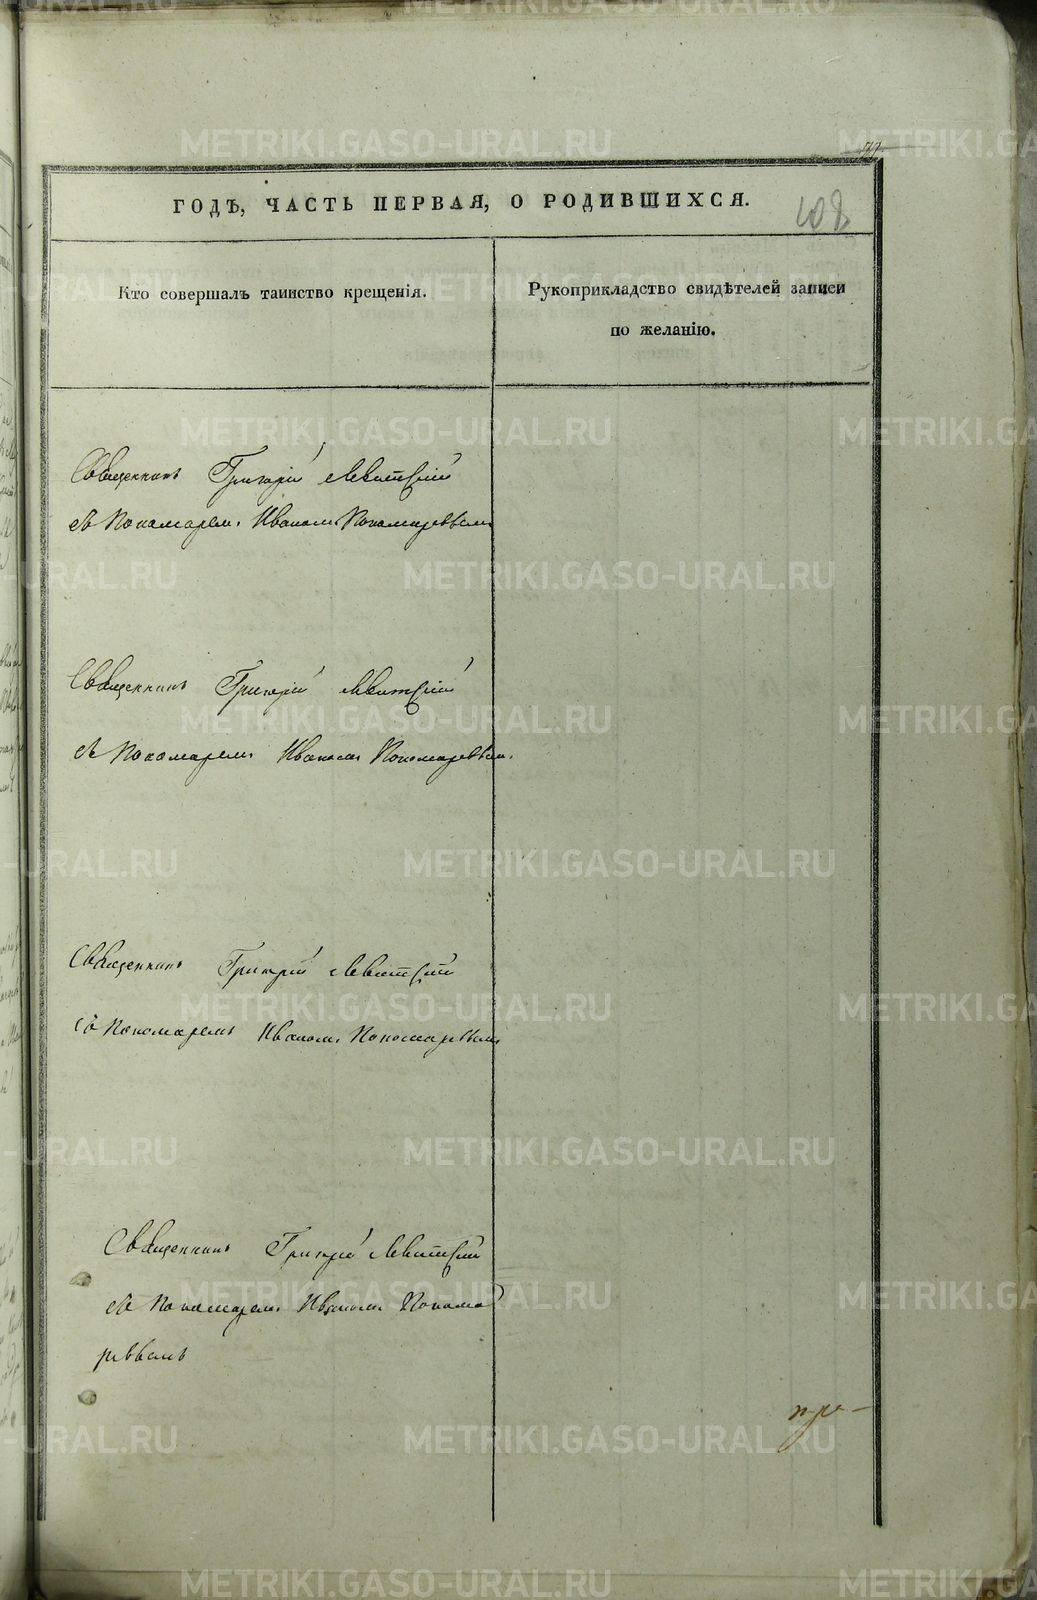 METRIKI.GASO-URAL.RU
ГОДЪ, ЧАСТЬ ПЕРВАЯ, О РОДИВШИХСЯ.
108
Кто совершалъ таинство крещенія.
Рукоприкладство свидѣтелей записи
по желанію.
Священникъ Григорій Левитскій
съ Пономаремъ Иваномъ Пономаревымъ
Священникъ Григорій Левитскій
съ Пономаремъ Иваномъ Пономаревымъ.
Священникъ Григорій Левитскій
съ Пономаремъ Иваномъ Пономаревымъ
Священникъ Григорій Левитскій
съ Пономаремъ Иваномъ Понома
ревымъ